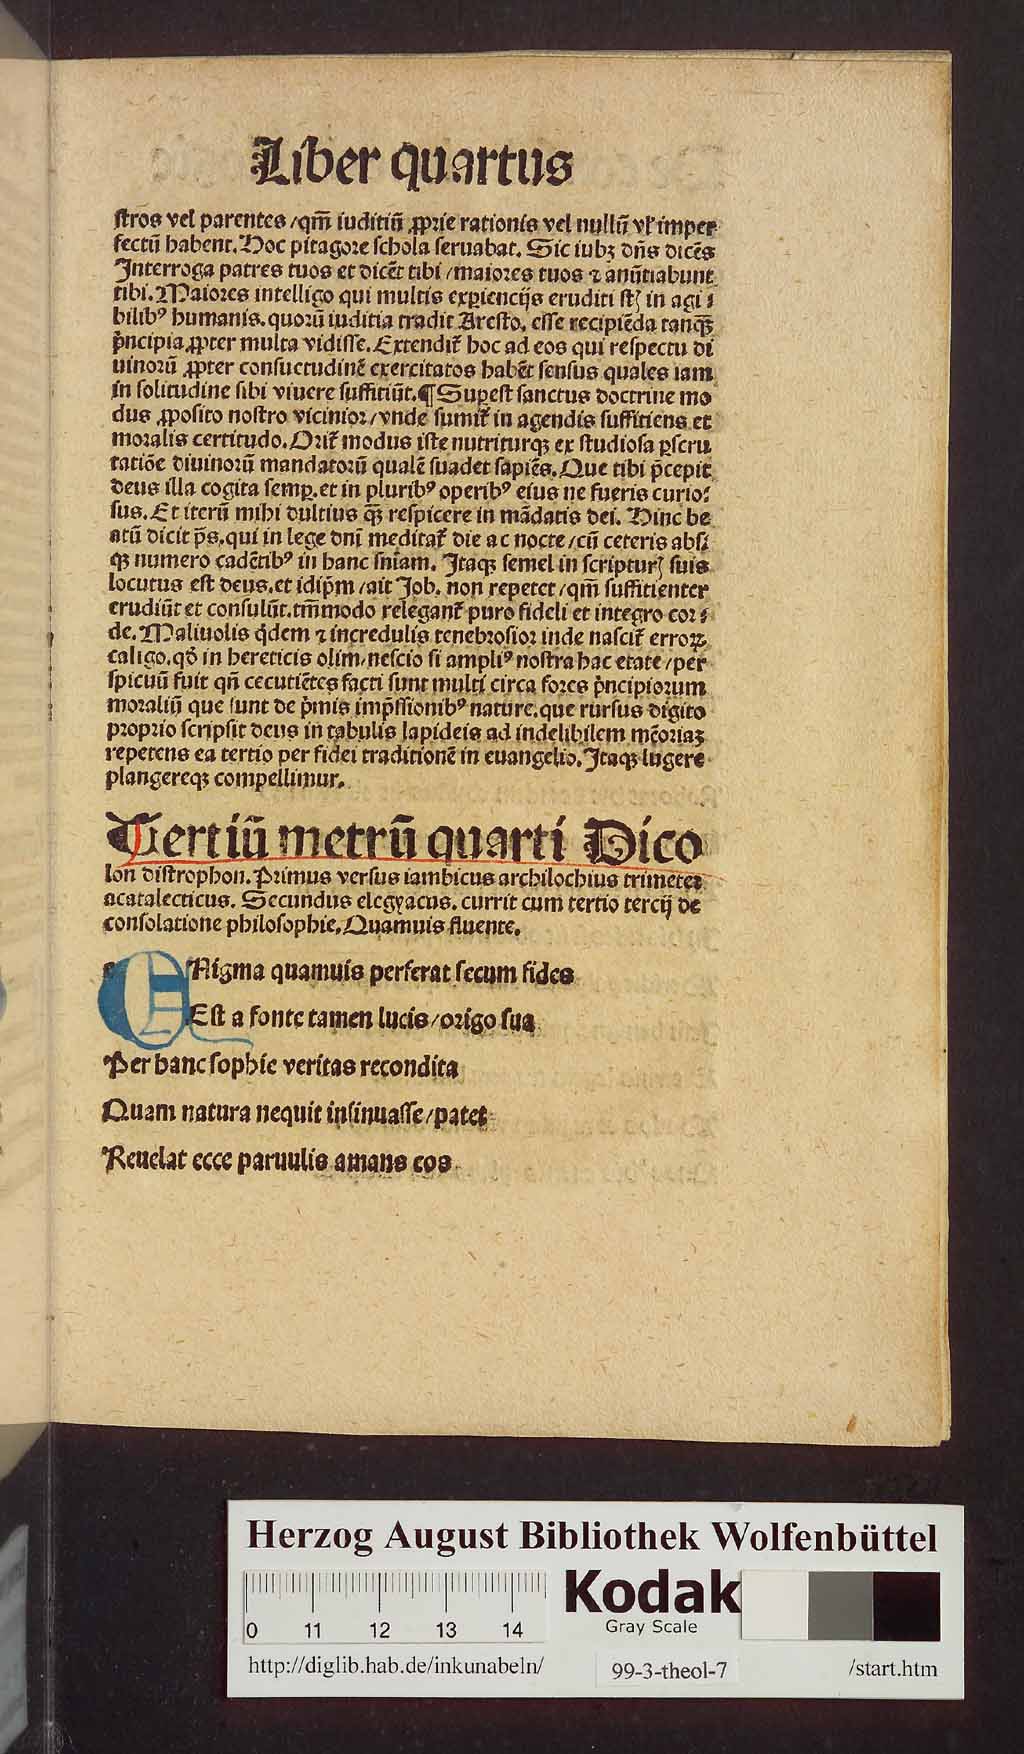 Liber quartus
stros vel parentes / qm̃ iuditiũ ꝓprie rationis vel nullũ vł imper
fectũ habent. Hoc pitagore schola seruabat. Sic iubꝫ dñs dicẽs
Interroga patres tuos et dicẽt tibi / maiores tuos ⁊ anũtiabunt
tibi. Maiores intelligo qui multis exꝑiencijs eruditi st̃ in agi⸗
bilibꝰ humanis. quorũ iuditia tradit Aresto. esse recipiẽda tanqꝫ̃
p̃ncipia ꝓpter multa vidisse. Extendit̃ hoc ad eos qui respectu di
uinorũ ꝓpter consuetudinẽ exercitatos habẽt sensus quales iam
in solitudine sibi viuere suffitiũt. ¶ Suꝑest sanctus doctrine mo
dus ꝓposito nostro vicinior / vnde sumit̃ in agendis suffitiens et
moralis certitudo. Orit̃ modus iste nutriturqꝫ ex studiosa ꝑscru
tatiõe diuinorũ mandatorũ qualẽ suadet sapiẽs. Que tibi p̃cepit
deus illa cogita semꝑ. et in pluribꝰ operibꝰ eius ne fueris curio⸗
sus. Et iterũ mihi dultius qꝫ̃ respicere in mãdatis dei. Hinc be
atũ dicit p̃s. qui in lege dnĩ meditat̃ die ac nocte / cũ ceteris absꝫ
qꝫ numero cadẽtibꝰ in hanc sniãm. Itaqꝫ semel in scripturꝫ suis
locutus est deus. et idip̃m / ait Job. non repetet / qm̃ suffitienter
erudiũt et consulũt. tm̃modo relegant̃ puro fideli et integro cor⸗
de. Maliuolis q̇dem ⁊ incredulis tenebrosior inde nascit̃ errorꝫ
caligo. qð in hereticis olim / nescio si ampliꝰ nostra hac etate / per
spicuũ fuit qñ cecutiẽtes facti sunt multi circa fores p̃ncipiorum
moraliũ que sunt de p̃mis imp̃ssionibꝰ nature. que rursus digito
proprio scripsit deus in tabulis lapideis ad indelibilem mẽoriaꝫ
repetens ea tertio per fidei traditionẽ in euangelio. Itaqꝫ lugere
plangereqꝫ compellimur.
Tertiũ metrũ quarti Dico
lon distrophon. Primus versus iambicus archilochius trimeter
acatalecticus. Secundus elegyacus. currit cum tertio tercij de
consolatione philosophie. Quamuis fluente.
ENigma quamuis perferat secum fides
Est a fonte tamen lucis / origo sua
Per hanc sophie veritas recondita
Quam natura nequit insinuasse / patet
Reuelat ecce paruulis amans eos
Herzog August Bibliothek Wolfenbüttel
0 11 12 13 14
Kodak
Gray Scale
http://diglib.hab.de/inkunabeln/ 99-3-theol-7 /start.htm